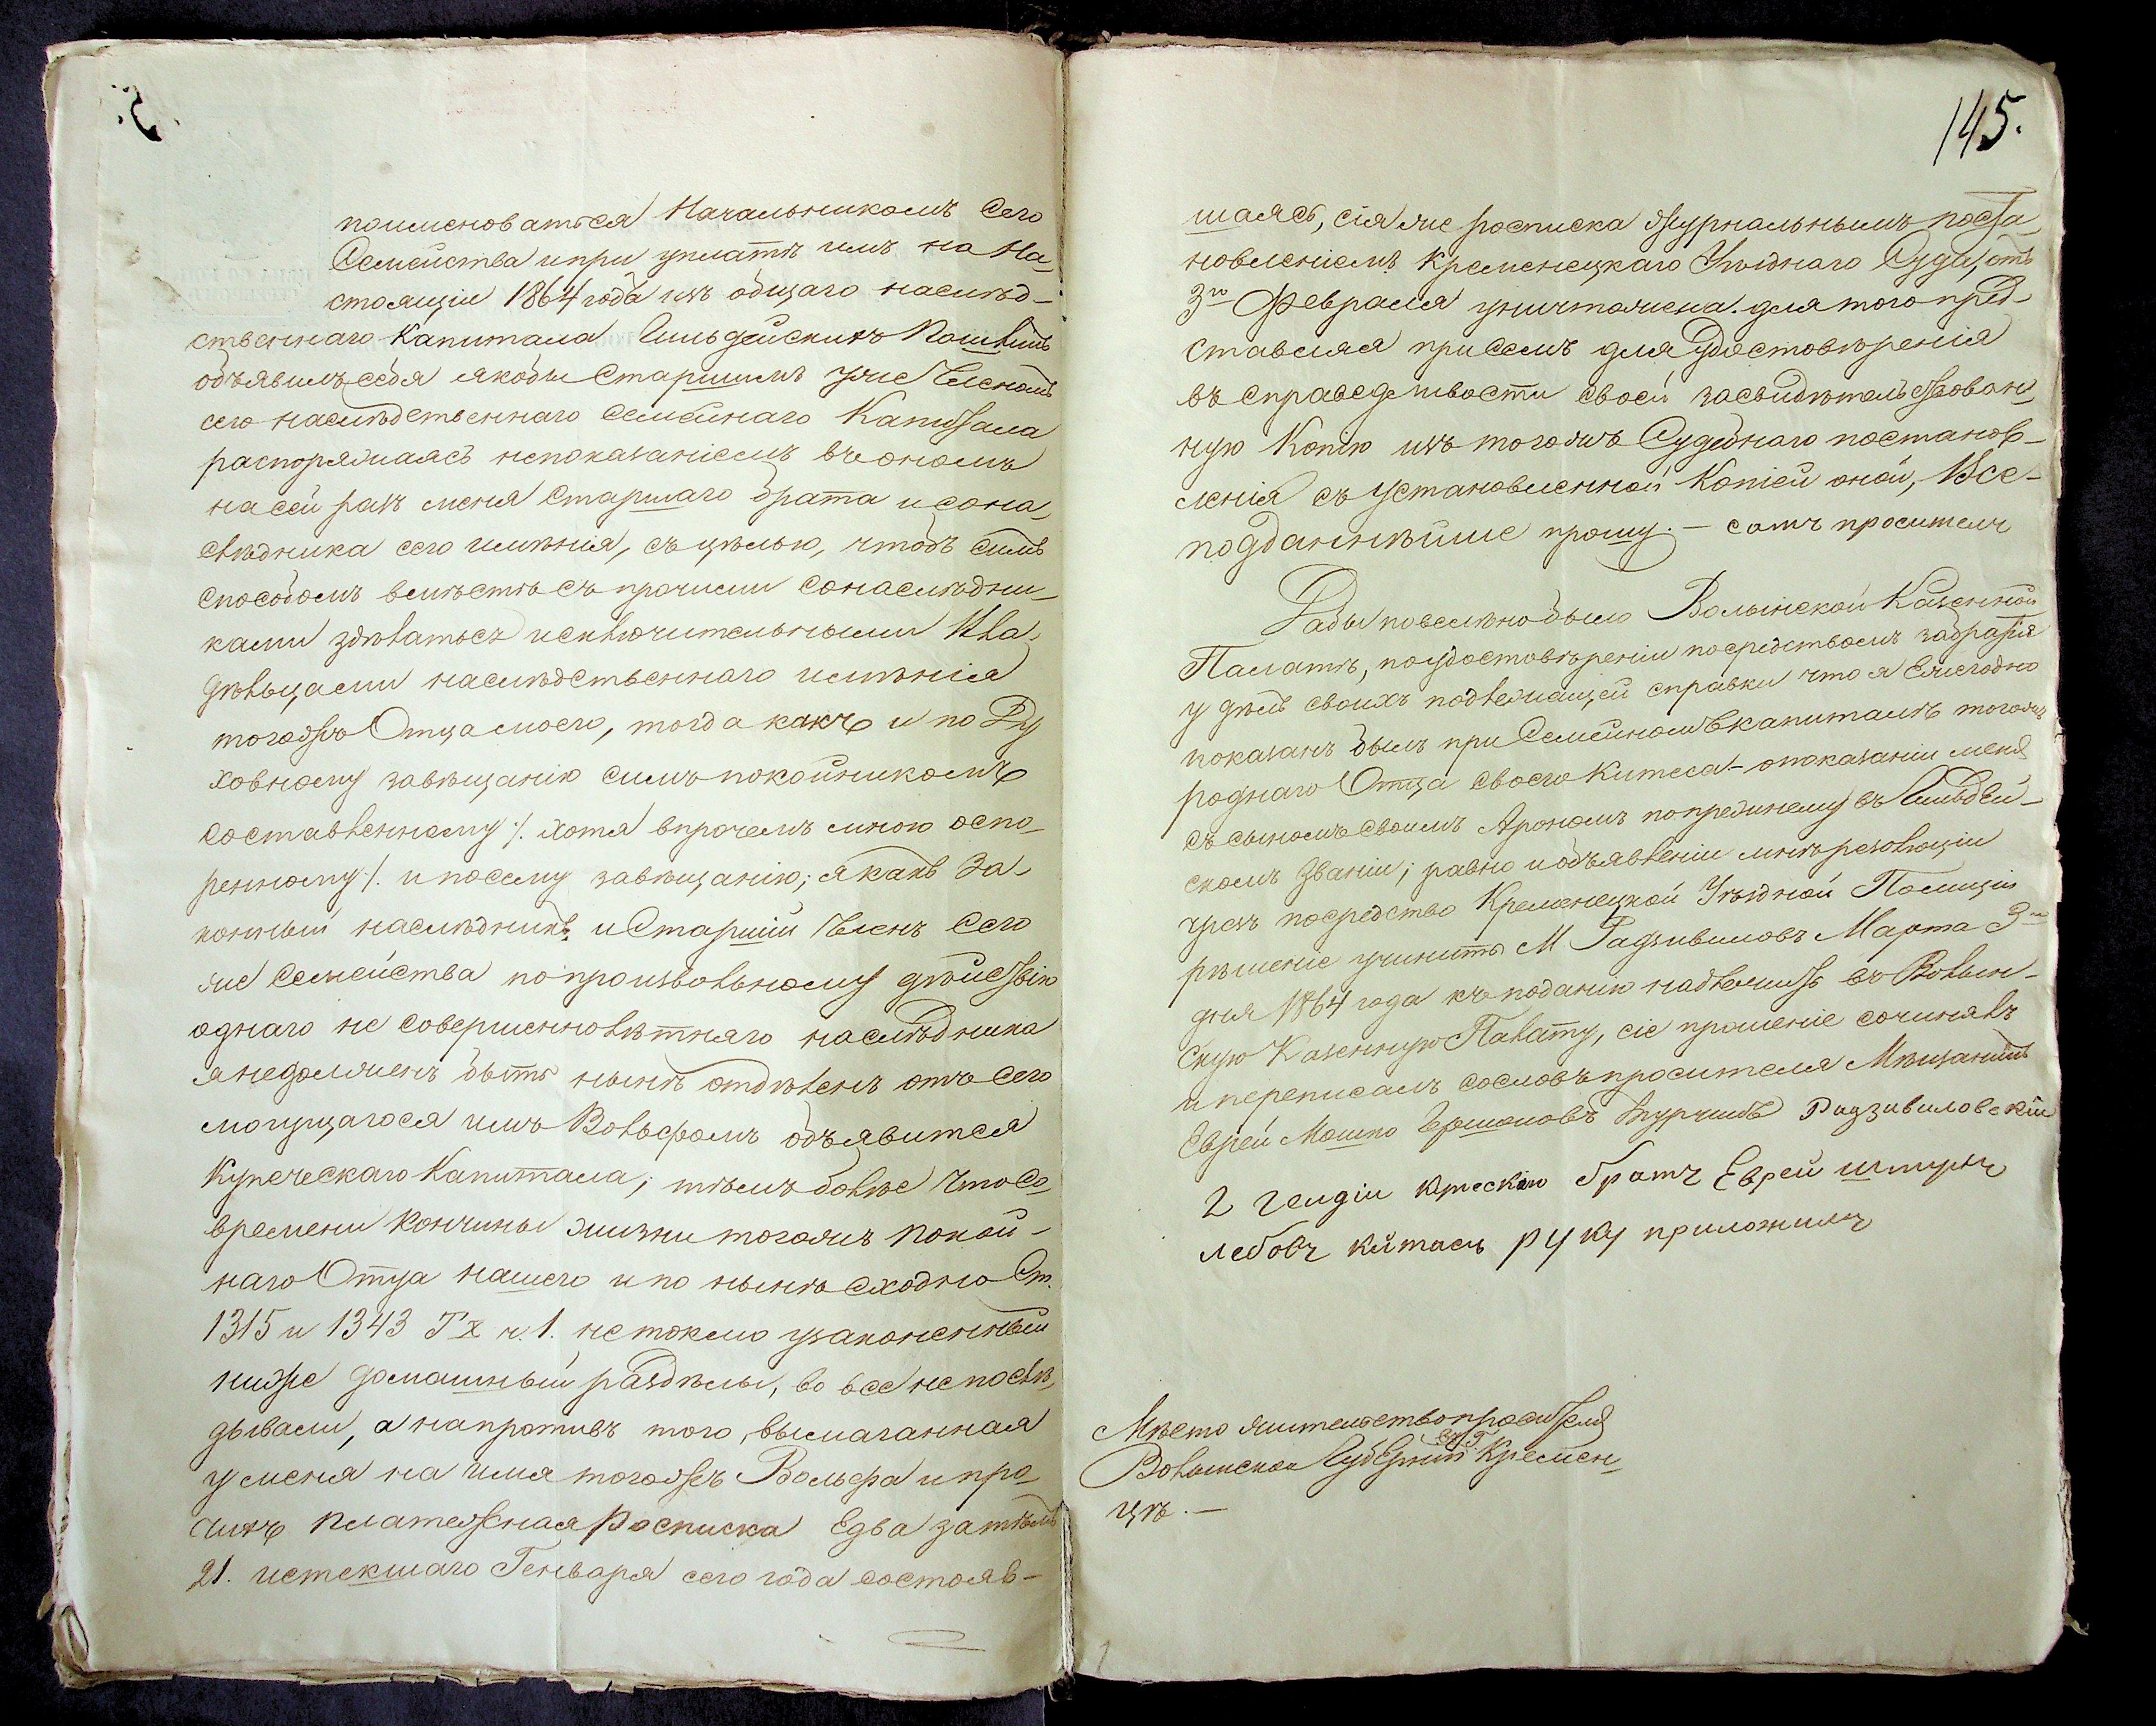 145.
поименоваться Начальникомъ сего
Семейства и при уплатѣ имъ на На-
стоящіи 1864 года изъ общаго наслѣд-
ственнаго капитала Гильдейскихъ Пошлинъ
объявилъ себя якобы Старшимъ уже Членомъ
сего наслѣдственнаго Семейнаго Капитала
распоряжаясь непоказаніемъ въ ономъ
на сей разъ меня Старшаго брата и сона-
слѣдника сего имѣнія, съ цѣлью, чтобъ симъ
способомъ вмѣстѣ съ прочими сонаслѣдни-
ками здѣлаться исключительными Вла-
дѣльцами наслѣдственнаго имѣнія
тогожъ Отца моего, тогда какъ и по Ду
ховному завѣщанію симъ покойникомъ
составленному /. хотя впрочемъ мною оспо-
ренному ./. и по сему завѣщанію; я какъ За-
конный наслѣдникъ и Старшій Членъ Сего
же Семейства по произвольному дѣйствію
однаго не совершеннолѣтняго наслѣдника
я недолженъ быть нынѣ отдѣленъ отъ сего
могущагося имъ Вольфомъ объявится
Купеческаго Капитала; тѣмъ болѣе что со
времени кончины жизни тогожъ покой-
наго Отца нашего и по нынѣ сходно Ст.
1315 и 1343 Т X ч. 1. не токмо узаконенный
ниже домашный раздѣлы, во все не послѣ-
дывали, а напротивъ того, вымаганная
у меня на имя тогожъ Вольфа и про-
чихъ платежная росписка Едва затѣмъ
21. истекшаго Генваря сего года состояв-
шаясь, сія же росписка журнальнымъ поста-
новленіемъ Кременецкаго Уѣзднаго Суда, отъ
3го Февраля уничтожена. для того пред-
ставляя при семъ для удостовѣренія
въ справедливости своей засвидѣтельствован-
ную Копію изъ тогожъ Судебнаго постанов-
ленія съ установленной Копіей оной, Все-
подданнѣйше прошу. — самъ проситель
Дабы повелѣно было Волынской Казенной
Палатѣ, по удостовѣреніи посредствомъ забратія
у дѣлъ своихъ подлежащей справки что я Ежегодно
показанъ былъ при Семейномъ капиталѣ тогожъ
роднаго Отца своего Китаса - о показаніи меня
съ сыномъ своимъ Арономъ попрежнему въ Гильдей-
скомъ званіи; равно и объявленіи мнѣ резолюціи
чрезъ посредство Кременецкой Уѣздной Полиціи
рѣшеніе учинить М Радзивиловъ Марта 3го
дня 1864 года къ поданію надлежитъ въ Волын-
скую Казенную Палату, сіе прошеніе сочинялъ
и переписалъ со словъ просителя Мѣщанинъ
Еврей Мошко Гершоновъ Радзивиловскій
2 гелдіи братъ Еврей
лебовъ китасъ руку приложилъ
Мѣсто жительство просителя
Волынской Губерніи въ Г. Кремен-
цѣ. —